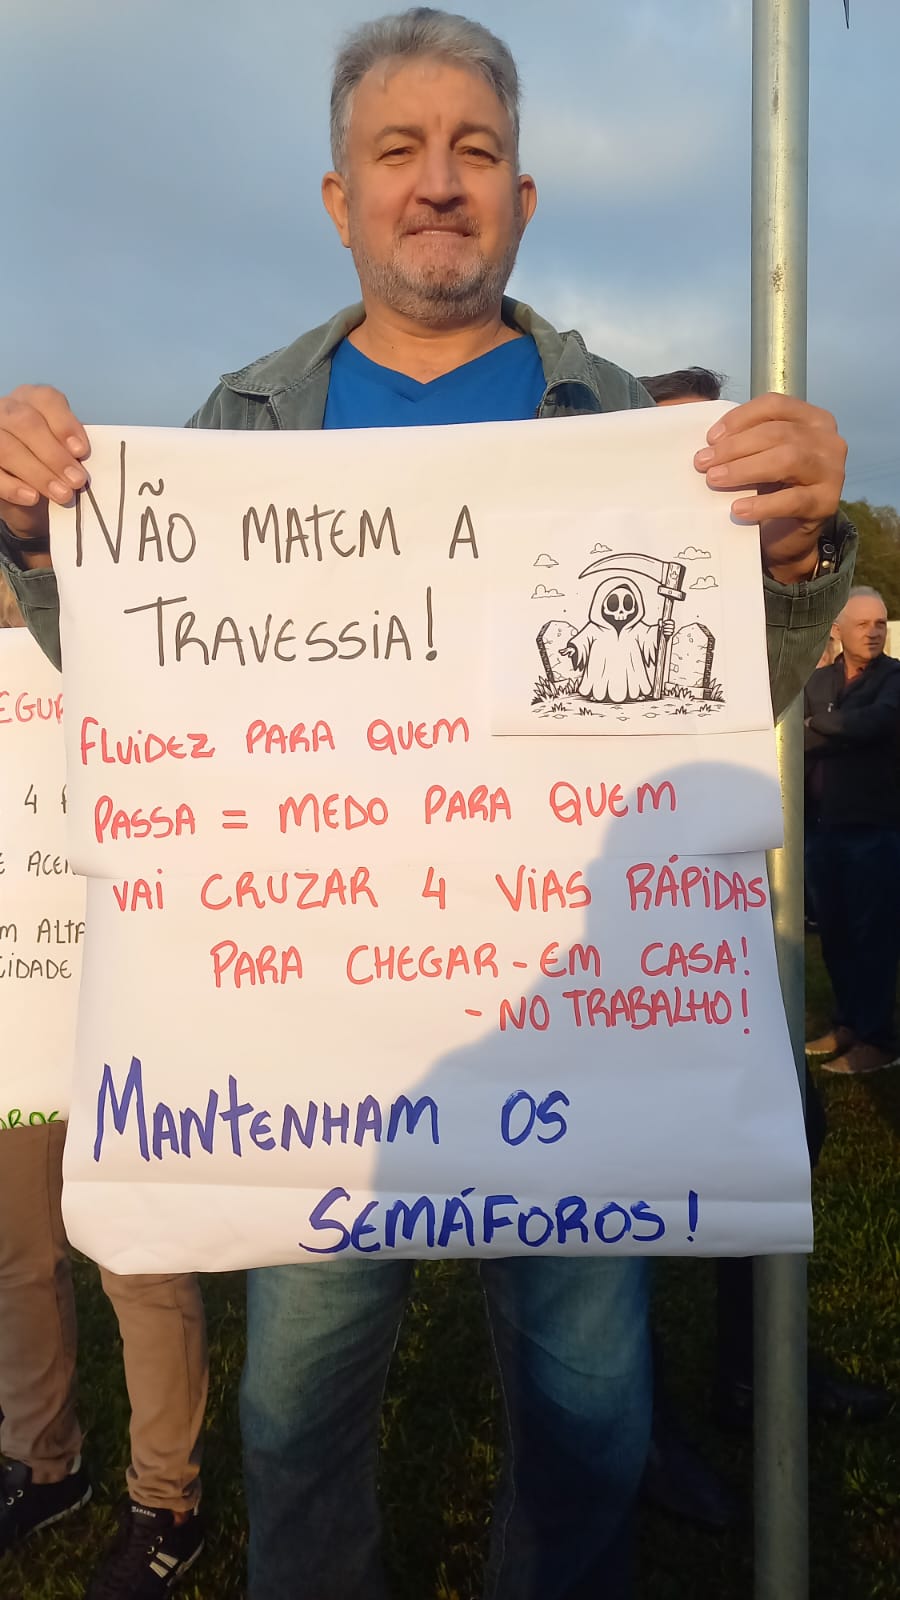 NÃO MATEM A
TRAVESSIA!
FLUIDEZ PARA QUEM
PASSA = MEDO PARA QUEM
VAI CRUZAR 4 VIAS RÁPIDAS
PARA CHEGAR - EM CASA!
- NO TRABALHO!
MANTENHAM OS
SEMÁFOROS!
EGUR
4
E ACEN
M ALTA
CIDADE